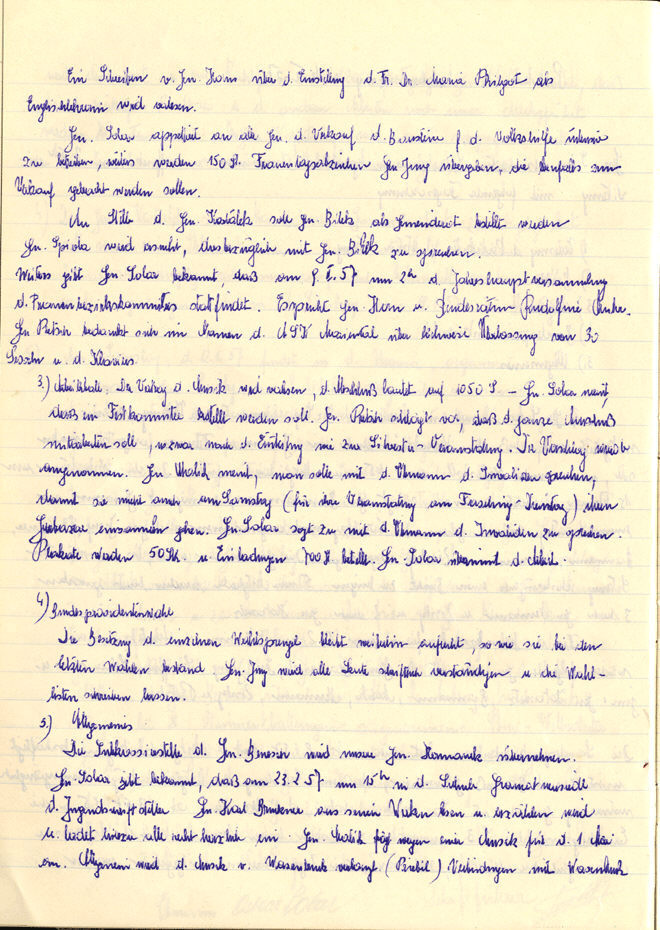 Ein Schreiben v. Gen. Hans über d. Einstellung d. Fr. Dr. Maria Philipot als
Englischlehrerin wird verlesen.
Gen. Solar appelliert an alle Gen. d. Verkauf d. Bausteine f. d. Volkshilfe intensiv
zu betreiben, weiters werden 150 St. Frauentagsabzeichen Gen. Jmy übergeben, die ebenfalls zum
Verkauf gebracht werden sollen.
An Stelle d. Gen. Koralek soll Gen. Bilek als Gemeinderat bestellt werden
Gen. Spiola wird ersucht, diesbezüglich mit Gen. Bilek zu sprechen.
Weiters gibt Gen. Solar bekannt, daß am 57 um 2h d. Jahreshauptversammlung
d. Frauenbezirkskomitees stattfindet. Es spricht Gen. Horn u. Bundesrätin Rudolfine Muhr.
Gen. bedankt sich im Namen d. für leihweise Überlassung von 30
Sesseln u. d. Klaviers.
3.) Der Vertrag d. Musik wird verlesen, d. lautet auf 1050 S. – Gen. Solar meint,
daß ein Festkomitee bestellt werden soll. Gen. schlägt vor, daß d. ganze Ausschuß
mitarbeiten soll, u. zwar nach d. Einteilung wie zur Silvester-Veranstaltung. Der Vorschlag wird
angenommen. Gen. Walik meint, man solle mit d. Obmann d. Invaliden sprechen,
damit sie nicht auch am Samstag (für die Veranstaltung am Fasching-Sonntag) ihren
einsammeln gehen. Gen. Solar sagt zu mit d. Obmann d. Invaliden zu sprechen.
Plakate werden 50 St. u. Einladungen 700 St. bestellt. Gen. Solar übernimmt d. Arbeit.
4.) Bundespräsidentenwahl
Die Besetzung d. einzelnen Wahlsprengel bleibt weiterhin aufrecht, so wie sie bei den
letzten Wahlen bestand. Gen. Jmy wird alle Leute schriftlich verständigen u. die Wahl-
listen schreiben lassen.
5.) Allgemeines
Die d. Gen. Beneser wird unsere Gen. Romanek übernehmen.
Gen. Solar gibt bekannt, daß am 23.2.57 um 15h in d. Schule Gramatneusiedl
d. Jugendschriftsteller Gen. Karl Bruckner aus seinen Werken lesen u. erzählen wird
u. ladet hiezu alle recht herzlich ein. Gen. Walik frägt wegen einer Musik für d. 1. Mai
an. Allgemein wird d. Musik v. Wasenbruck verlangt (Pribil) Verbindungen mit Wasenbruck